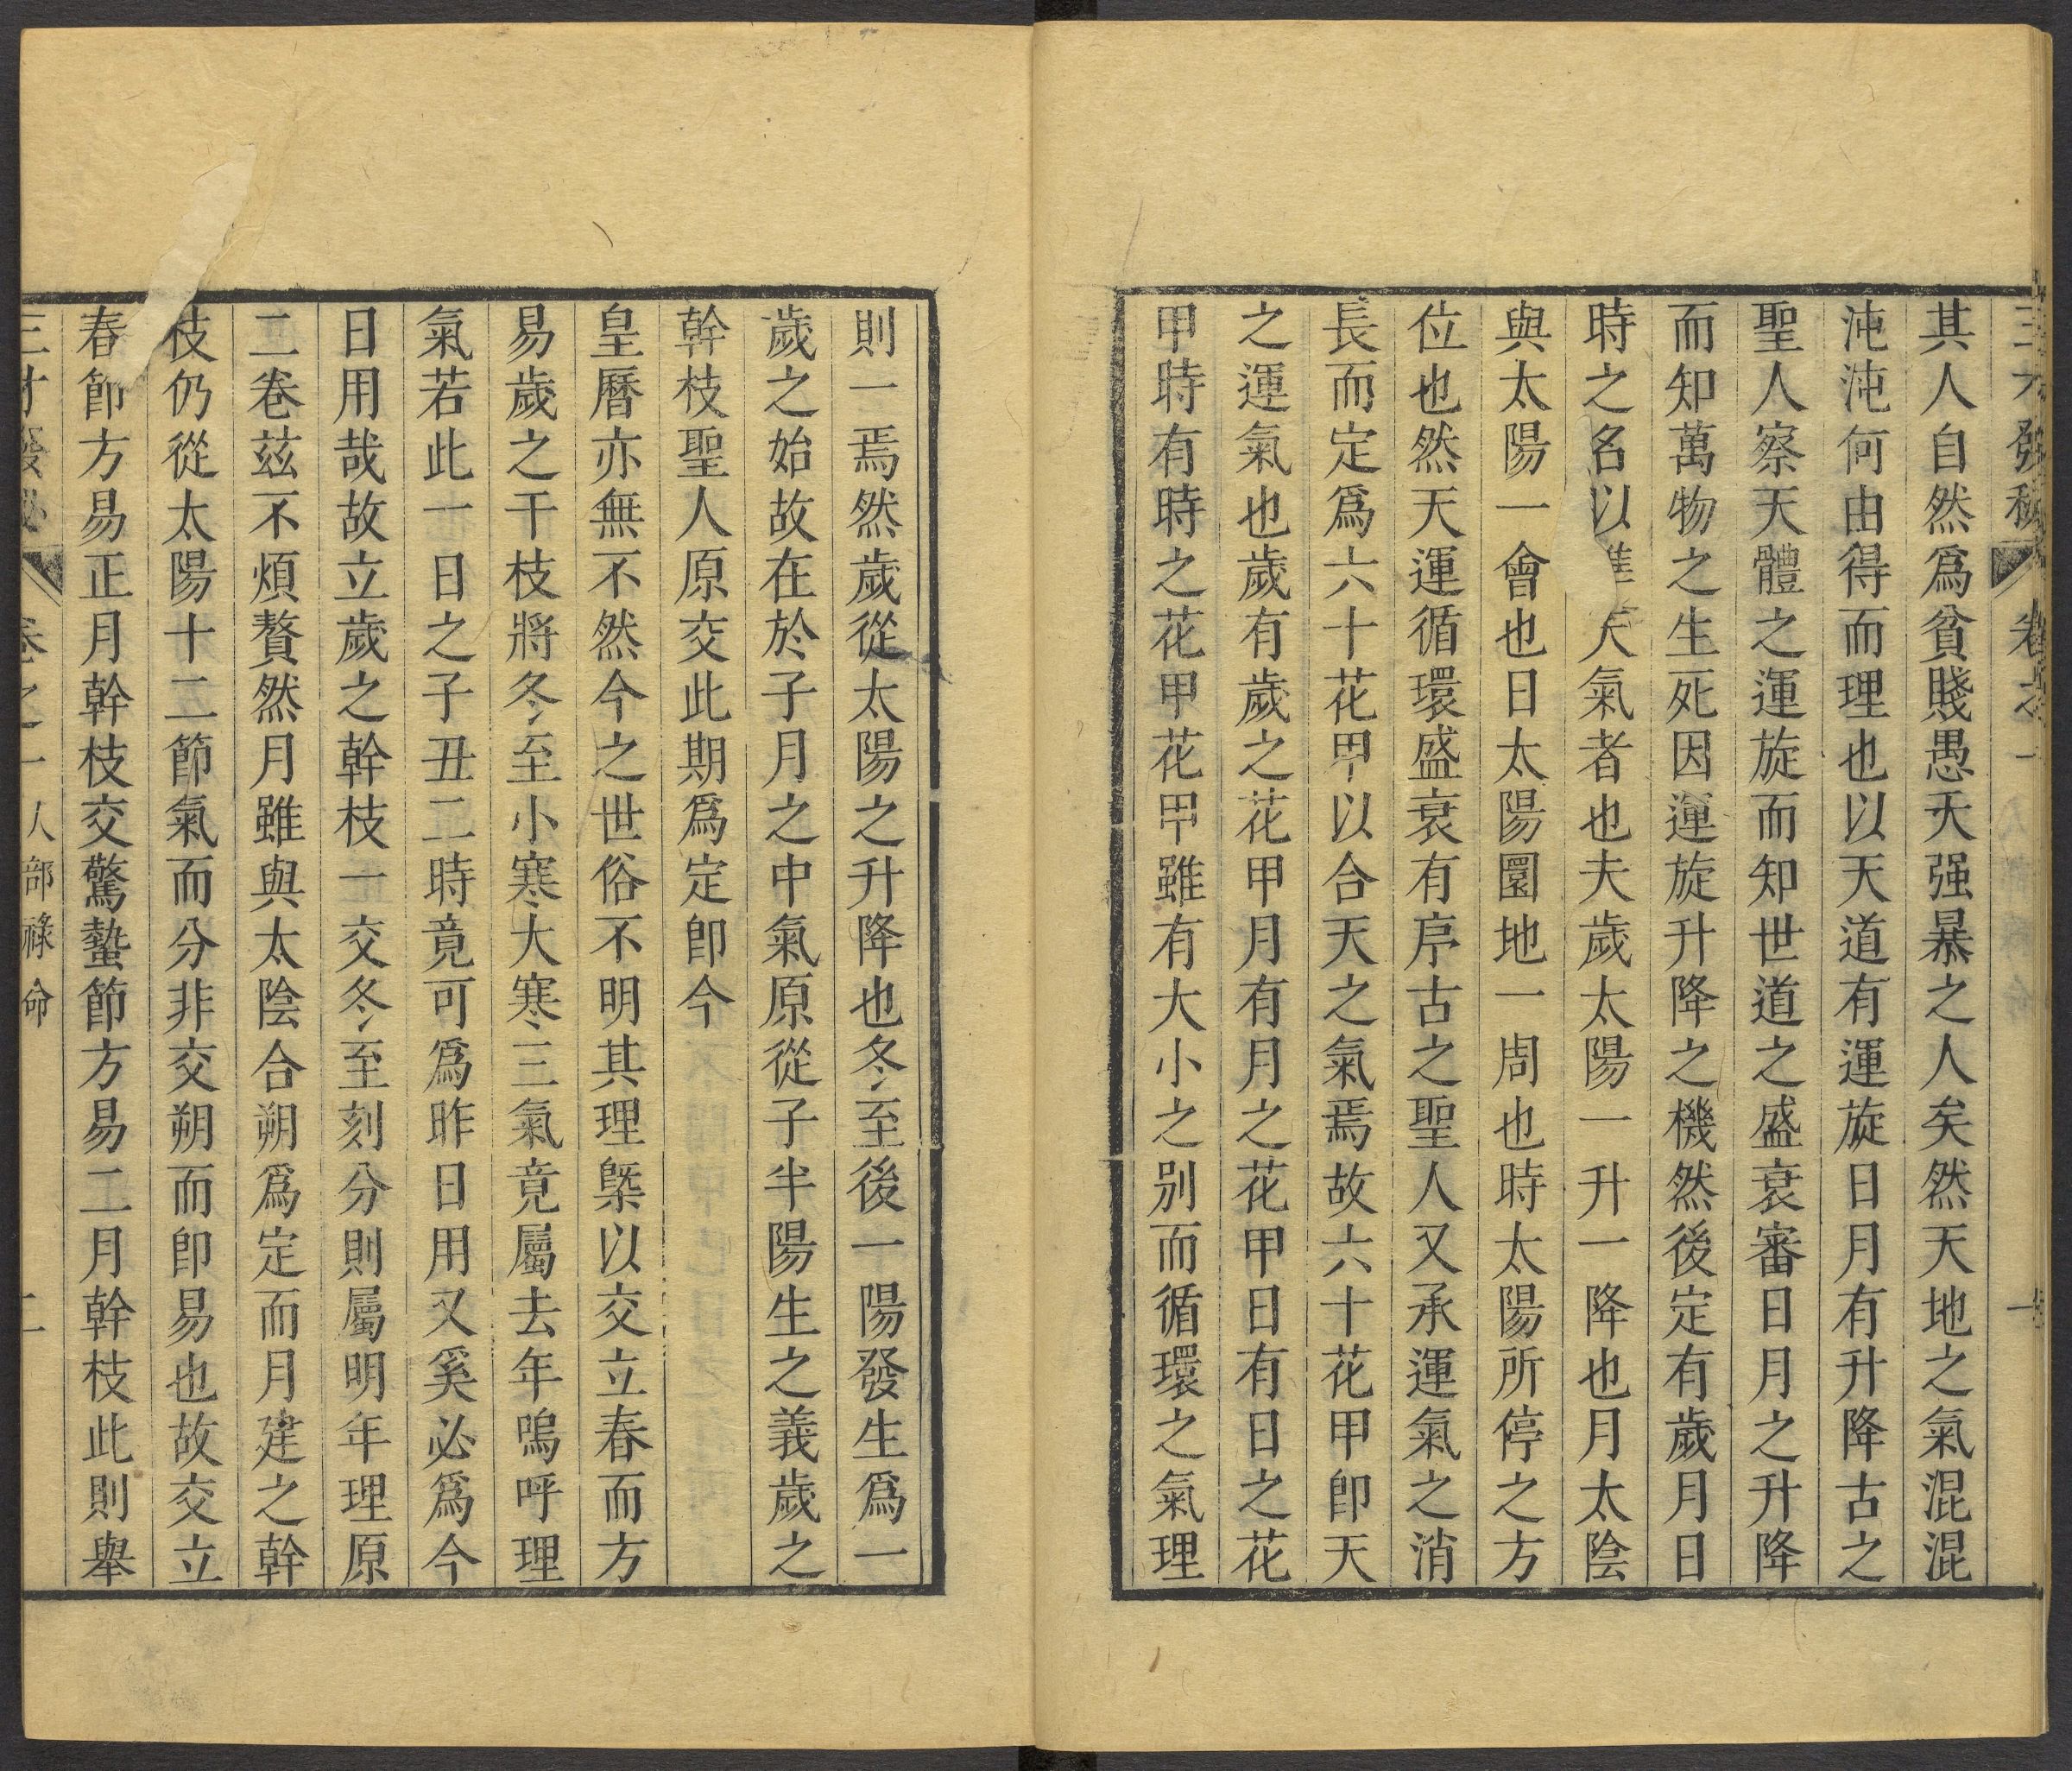 其人自然爲貧賤愚夭强暴之人矣然天地之氣混混
沌沌何由得而理也以天道有運旋日月有升降古之
聖人察天體之運旋而知世道之盛衰審日月之升降
而知萬物之生死因運旋升降之機然後定有歲月日
時之名以 天氣者也夫歲太陽一升一降也月太陰
與太陽一會也日太陽圜地一周也時太陽所停之方
位也然天運循環盛衰有序古之聖人又承運氣之消
長而定爲六十花甲以合天之氣焉故六十花甲卽天
之運氣也歲有歲之花甲月有月之花甲日有日之花
甲時有時之花甲花甲雖有大小之别而循環之氣理
則一焉然歲從太陽之升降也冬至後一陽發生爲一
歲之始故在於子月之中氣原從子半陽生之義歲之
幹枝聖人原交此期爲定卽今
皇曆亦無不然今之世俗不明其理槩以交立春而方
易歲之干枝將冬至小寒大寒三氣竟屬去年嗚呼理
氣若此一日之子丑二時竟可爲昨日用又奚必爲今
日用哉故立歲之幹枝一交冬至刻分則屬明年理原
二卷茲不煩贅然月雖與太陰合朔爲定而月建之幹
枝仍從太陽十二節氣而分非交朔而卽易也故交立
春節方易正月幹枝交驚蟄節方易二月幹枝此則舉
三才發秘 卷之一 人部祿命 二